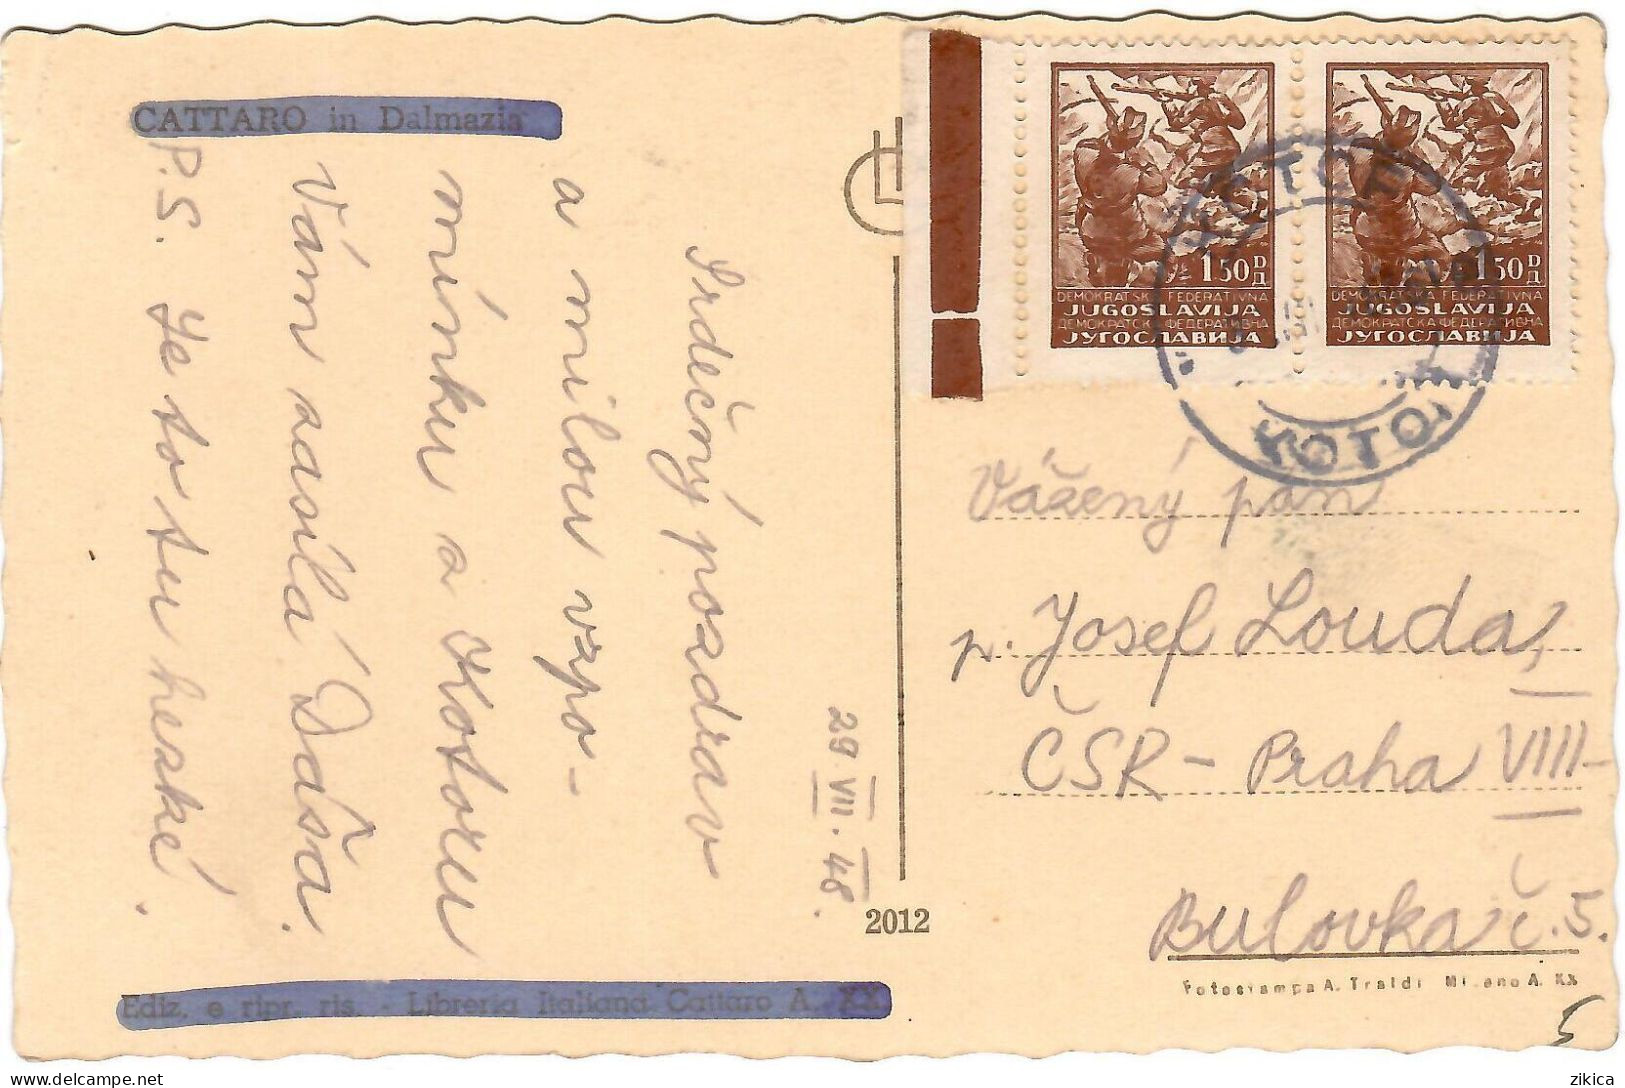 CATTARO in Dalmazia
Srdečný pozdrav
a milou vzpo-
mínku z Kotoru
Vám zasílá Dáša.
P.S. Je to tu hezké.
29 VII. 48.
Ediz. e ripr. ris. - Libreria Italiana Cattaro A. XX
2012
1 50 D Д
DEMOKRATSKA FEDERATIVNA
JUGOSLAVIJA
ДЕМОКРАТСКА ФЕДЕРАТИВНА
ЈУГОСЛАВИЈА
1 50 D Д
DEMOKRATSKA FEDERATIVNA
JUGOSLAVIJA
ДЕМОКРАТСКА ФЕДЕРАТИВНА
ЈУГОСЛАВИЈА
KOTOR
Vážený pán
p. Josef Louda,
ČSR - Praha VIII-
Bulovka č. 5.
Fotostampa A. Traldi Milano A. XX
5
zikica